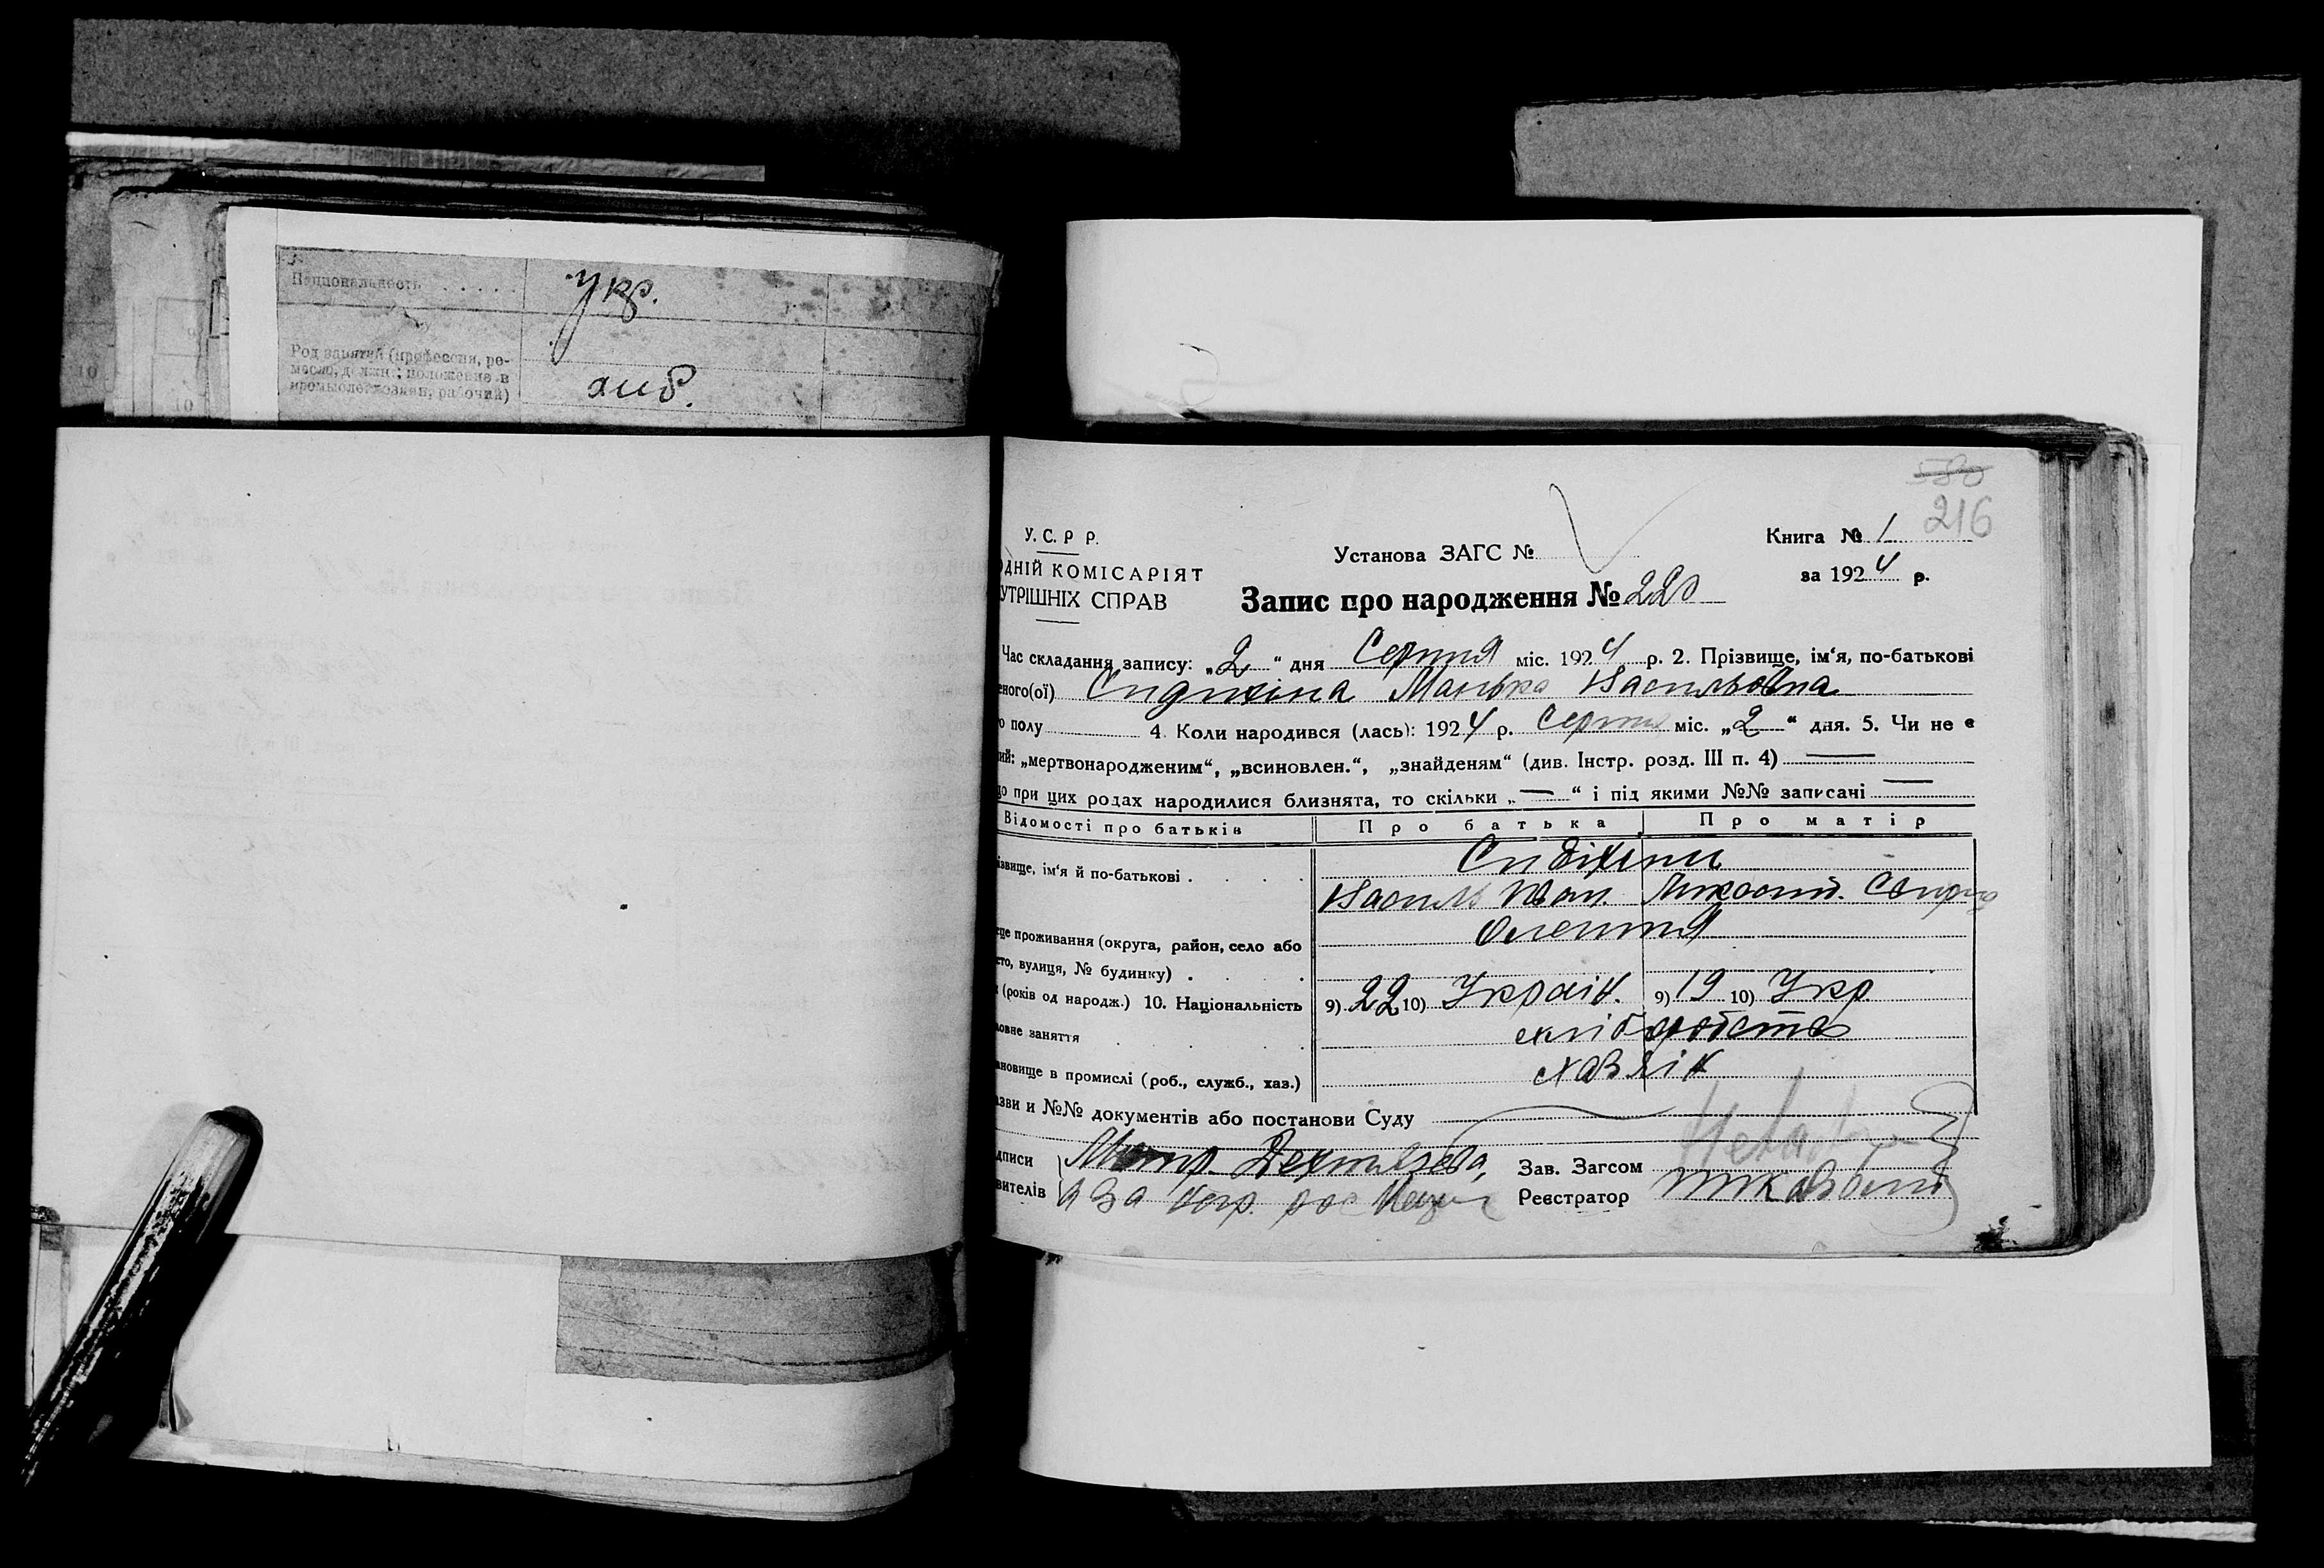 Национальность . . . . . укр.
Род занятий (профессия, ре-
месло, должн; положение в
промысле: хозяин, рабочий) хліб.
10
10
580
216
У. С. Р Р.
Установа ЗАГС №
Книга № 1
ОДНІЙ КОМІСАРІЯТ
за 1924 р.
УТРІШНІХ СПРАВ
Запис про народження № 220
Час складання запису: „2“ дня Серпня міс. 1924 р. 2. Прізвище, ім'я, по-батькові
еного(ої) Сидихіна Манька Васильовна
о полу 4. Коли народився (лась): 1924 р. Серпня міс. „2“ дня. 5. Чи не є
ий: „мертвонародженим“, „всиновлен.“, „знайденям“ (див. Інстр. розд. III п. 4) —
до при цих родах народилися близнята, то скільки „—“ і під якими №№ записані —
Відомості про батьків Про батька Про матір
ізвище, ім'я й по-батькові . . . .
Василь Іван.
еце проживання (округа, район, село або
сто, вулиця, № будинку) . .
(років од народж.) 10. Національність 9) 22 10) Україн. 9) 19 10) Укр
ловне заняття . . . хліборобство
ановище в промислі (роб., служб., хаз.) хазяїн
азви и №№ документів або постанови Суду
дписи Зав. Загсом
вителів Реєстратор